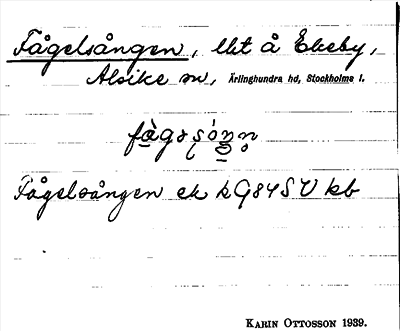 Fågelsången, lht å Ekeby,
Alsike sn, Ärlinghundra hd, Stockholms l.
Fågelsången ek kG84SV kb
KARIN OTTOSSON 1939.